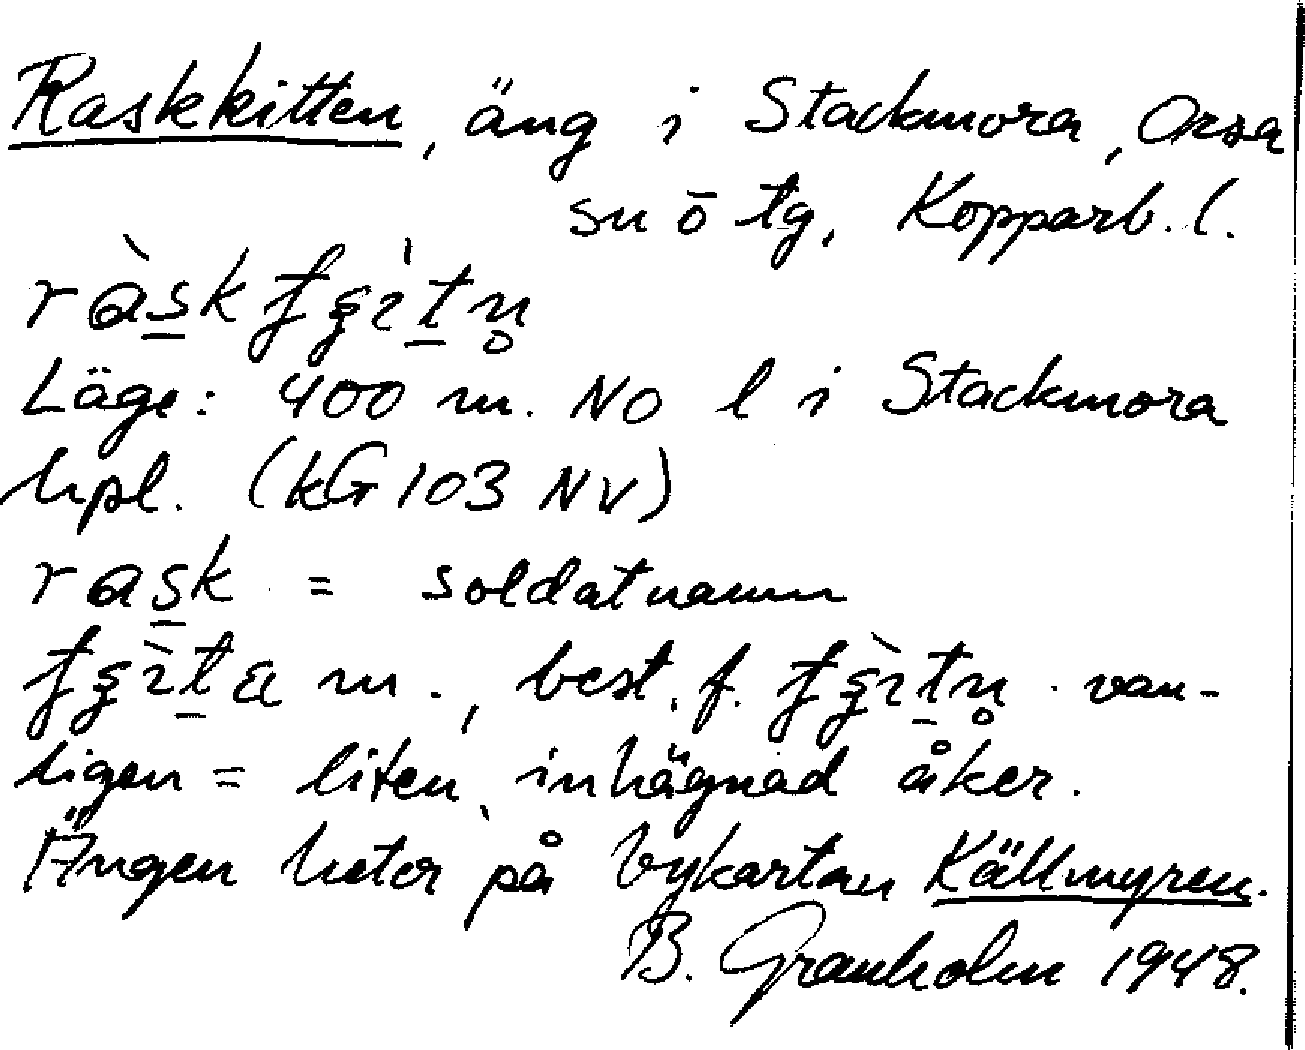 Raskkitten, äng i Stackmora, Orsa
sn ō tg, Kopparb. l.
Läge: 400 m. NO l i Stackmora
hpl. (kG 103 NV)
rask = soldatnamn
m., best. f. van-
ligen = liten, inhägnad åker.
Ängen heter på bykartan Källmyren.
B. Granholm 1948.